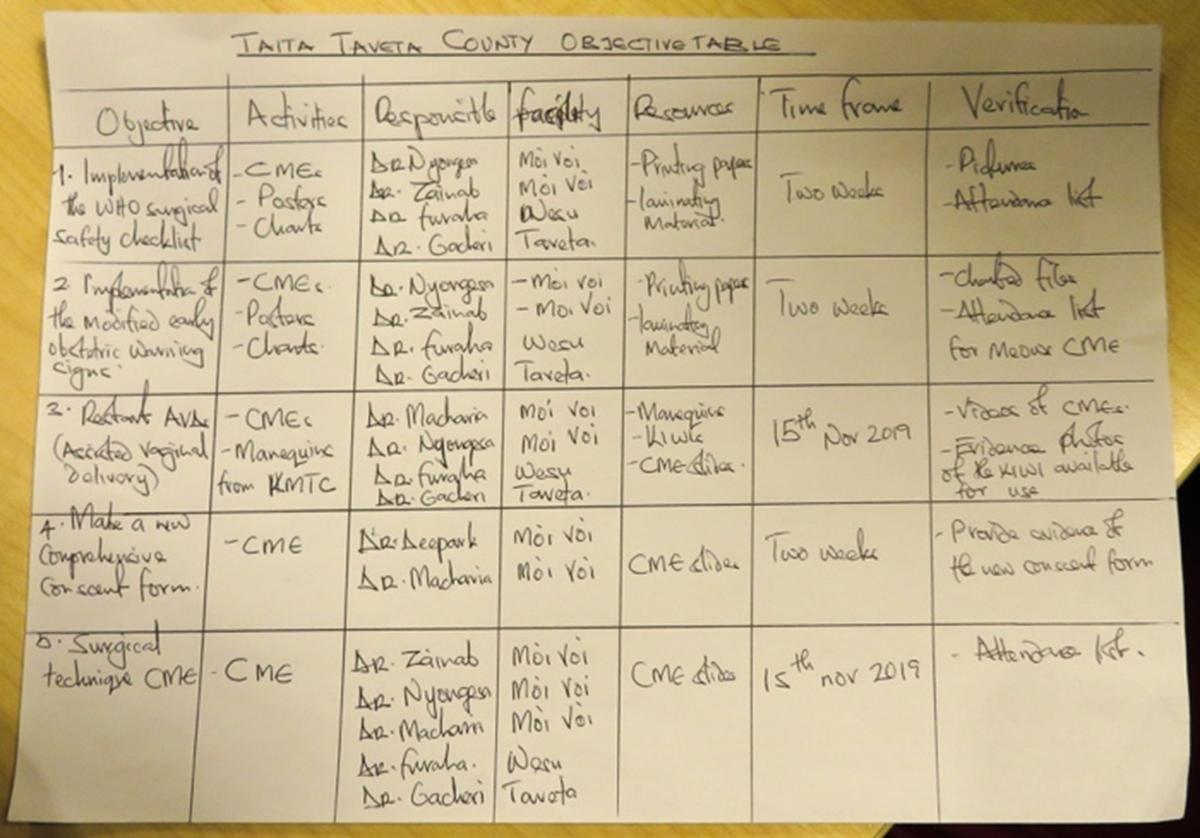 TAITA TAVETA COUNTY OBJECTIVE TABLE
Objective Activities Responsible facility Resources Time frame Verification
1. Implementation of
the WHO surgical
safety checklist
- CMEs
- Posters
- Charts
DR. Nyongesa
DR. Zainab
DR furaha
DR. Gacheri
Moi Voi
Moi Voi
Wesu
Taveta.
- Printing paper
- laminating
Material.
Two weeks
- Pictures
- Attendance list
2. Implementation of
the modified early
obstetric warning
signs.
- CMEs.
- Posters
- Charts.
DR. Nyongesa
DR. Zainab
DR. furaha
DR. Gacheri
- Moi Voi
- Moi Voi
Wesu
Taveta.
- Printing paper
- laminating
Material
Two weeks
- Charted files
- Attendance list
for Meows CME
3. Restart AVDs
(Assisted vaginal
delivery)
- CMEs
- Manequins
from KMTC
DR. Macharia
DR. Nyongesa
DR. furaha
DR. Gacheri
Moi Voi
Moi Voi
Wesu
Taveta.
- Manequins
- Kiwis
- CME slides.
15th Nov 2019
- Videos of CMEs.
- Evidence photos
of the KIWI available
for use
4. Make a new
Comprehensive
Conscent form.
- CME
DR. Deepark
DR. Macharia
Moi Voi
Moi Voi
CME slides
Two weeks
- Provide evidence of
the new conscent form
5. Surgical
technique CME
- CME
DR. Zainab
DR. Nyongesa
DR. Macharia
DR. furaha.
DR. Gacheri
Moi Voi
Moi Voi
Moi Voi
Wesu
Taveta
CME slides
15th nov 2019
- Attendance list.